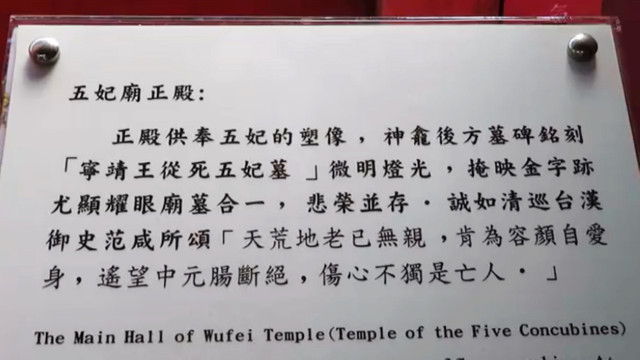 五妃廟正殿:
正殿供奉五妃的塑像，神龕後方墓碑銘刻
「寧靖王從死五妃墓 」微明燈光，掩映金字跡
尤顯耀眼廟墓合一，悲榮並存・誠如清巡台漢
御史范咸所頌「天荒地老已無親，肯為容顏自愛
身，遙望中元腸斷絕，傷心不獨是亡人・」
The Main Hall of Wufei Temple(Temple of the Five Concubines)